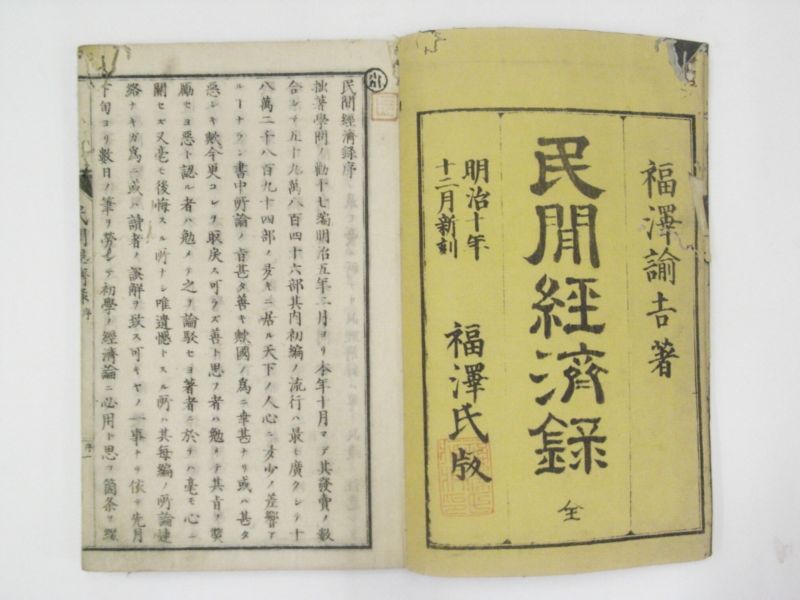 福澤諭吉著
民間經濟録
全
明治十年
十二月新刻
福澤氏版
民間經濟録序
拙著學問ノ勸十七編明治五年二月ヨリ本年十月マデ其發賣ノ數
合シテ五十九萬八百四十六部其内初編ノ流行ハ最モ廣クシテ十
八萬二千八百九十四部ノ多キニ居ル天下ノ人心ニ多少ノ差響ア
ルーナラン書中所論ノ旨甚タ善キ歟國ノ爲ニ幸甚ナリ或ハ甚タ
惡シキ歟今更コレヲ取戻ス可ラズ善ト思フ者ハ勉メテ其旨ヲ奬
勵セヨ惡ト認ル者ハ勉メテ之ヲ論駁セヨ著者ニ於テハ毫モ心ニ
關セズ又毫モ後悔スル所ナシ唯遺憾トスル所ハ其毎編ノ所論連
絡ナキガ爲ニ或ハ讀者ノ誤解ヲ致ス可キヤノ一事ナリ依テ先月
下旬ヨリ數日ノ筆ヲ勞シテ初學ノ經濟論ニ必用ト思フ箇条ヲ
民間經濟録 序
序一